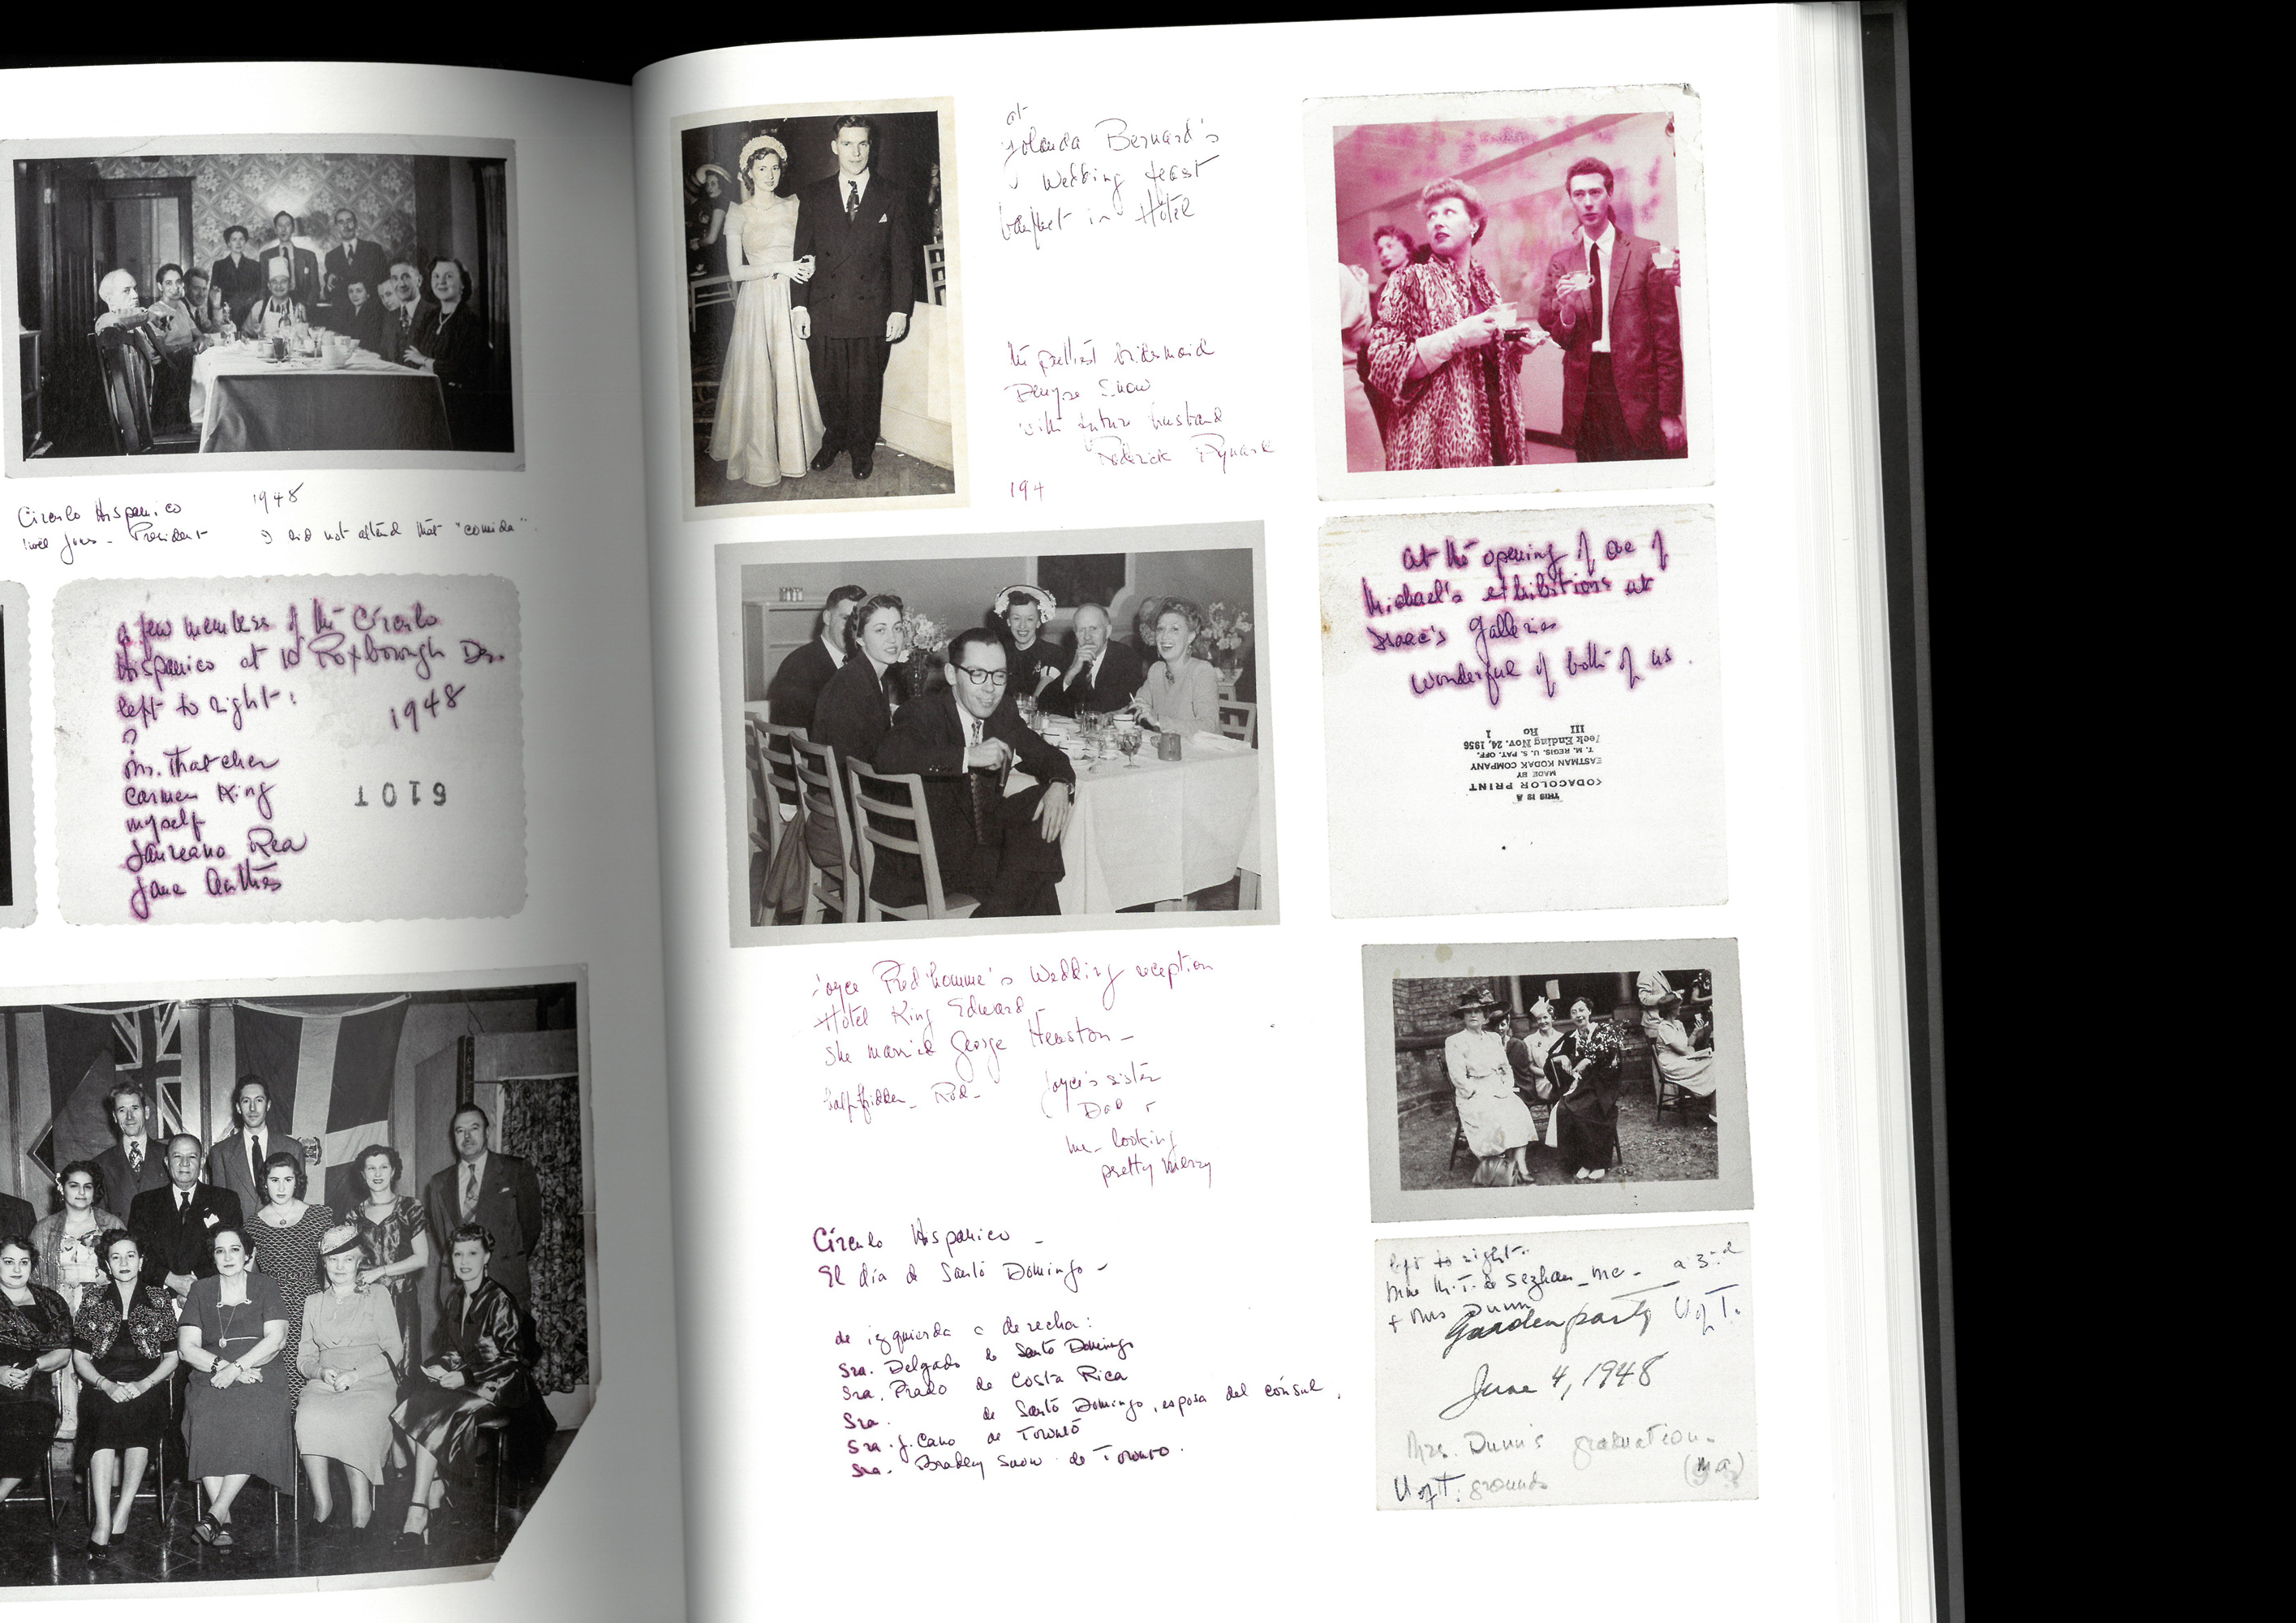 Círculo Hispanico 1948
President I did not attend that "comida".
a few members of the Círculo
Hispanico at 10 Roxborough Dr.
left to right: 1948
?
Mrs. Thatcher
Carmen King
myself
Laureano Rea
Jane
6101
at
Yolanda Bernard's
Wedding feast
banquet in Hôtel
the prettiest bridesmaid
Denyse Snow
with future husband
Roderick
194
Joyce Prud'homme's Wedding reception
Hôtel King Edward -
She married George Heaston -
half hidden - Rod - Joyce's sister
Dad
me - looking
pretty merry
Círculo Hispanico -
El día de Santo Domingo -
de izquierda a derecha:
Sra. Delgado de Santo Domingo
Sra. Prado de Costa Rica
Sra. de Santo Domingo, esposa del cónsul.
Sra. J. Cano de Toronto
Sra. Bradey Snow de Toronto.
at the opening of one of
Michael's exhibitions at
Isaac's Galleries
wonderful of both of us.
THIS IS A
KODACOLOR PRINT
MADE BY
EASTMAN KODAK COMPANY
T. M. REGIS. U. S. PAT. OFF.
Week Ending Nov. 24, 1956
III Ro 1
left to right:
Mme M.T. de - me - a 3rd
+ Mrs Dunn
Garden party U of T.
June 4, 1948
Mrs. Dunn's graduation -
(M.A.)
U of T. grounds